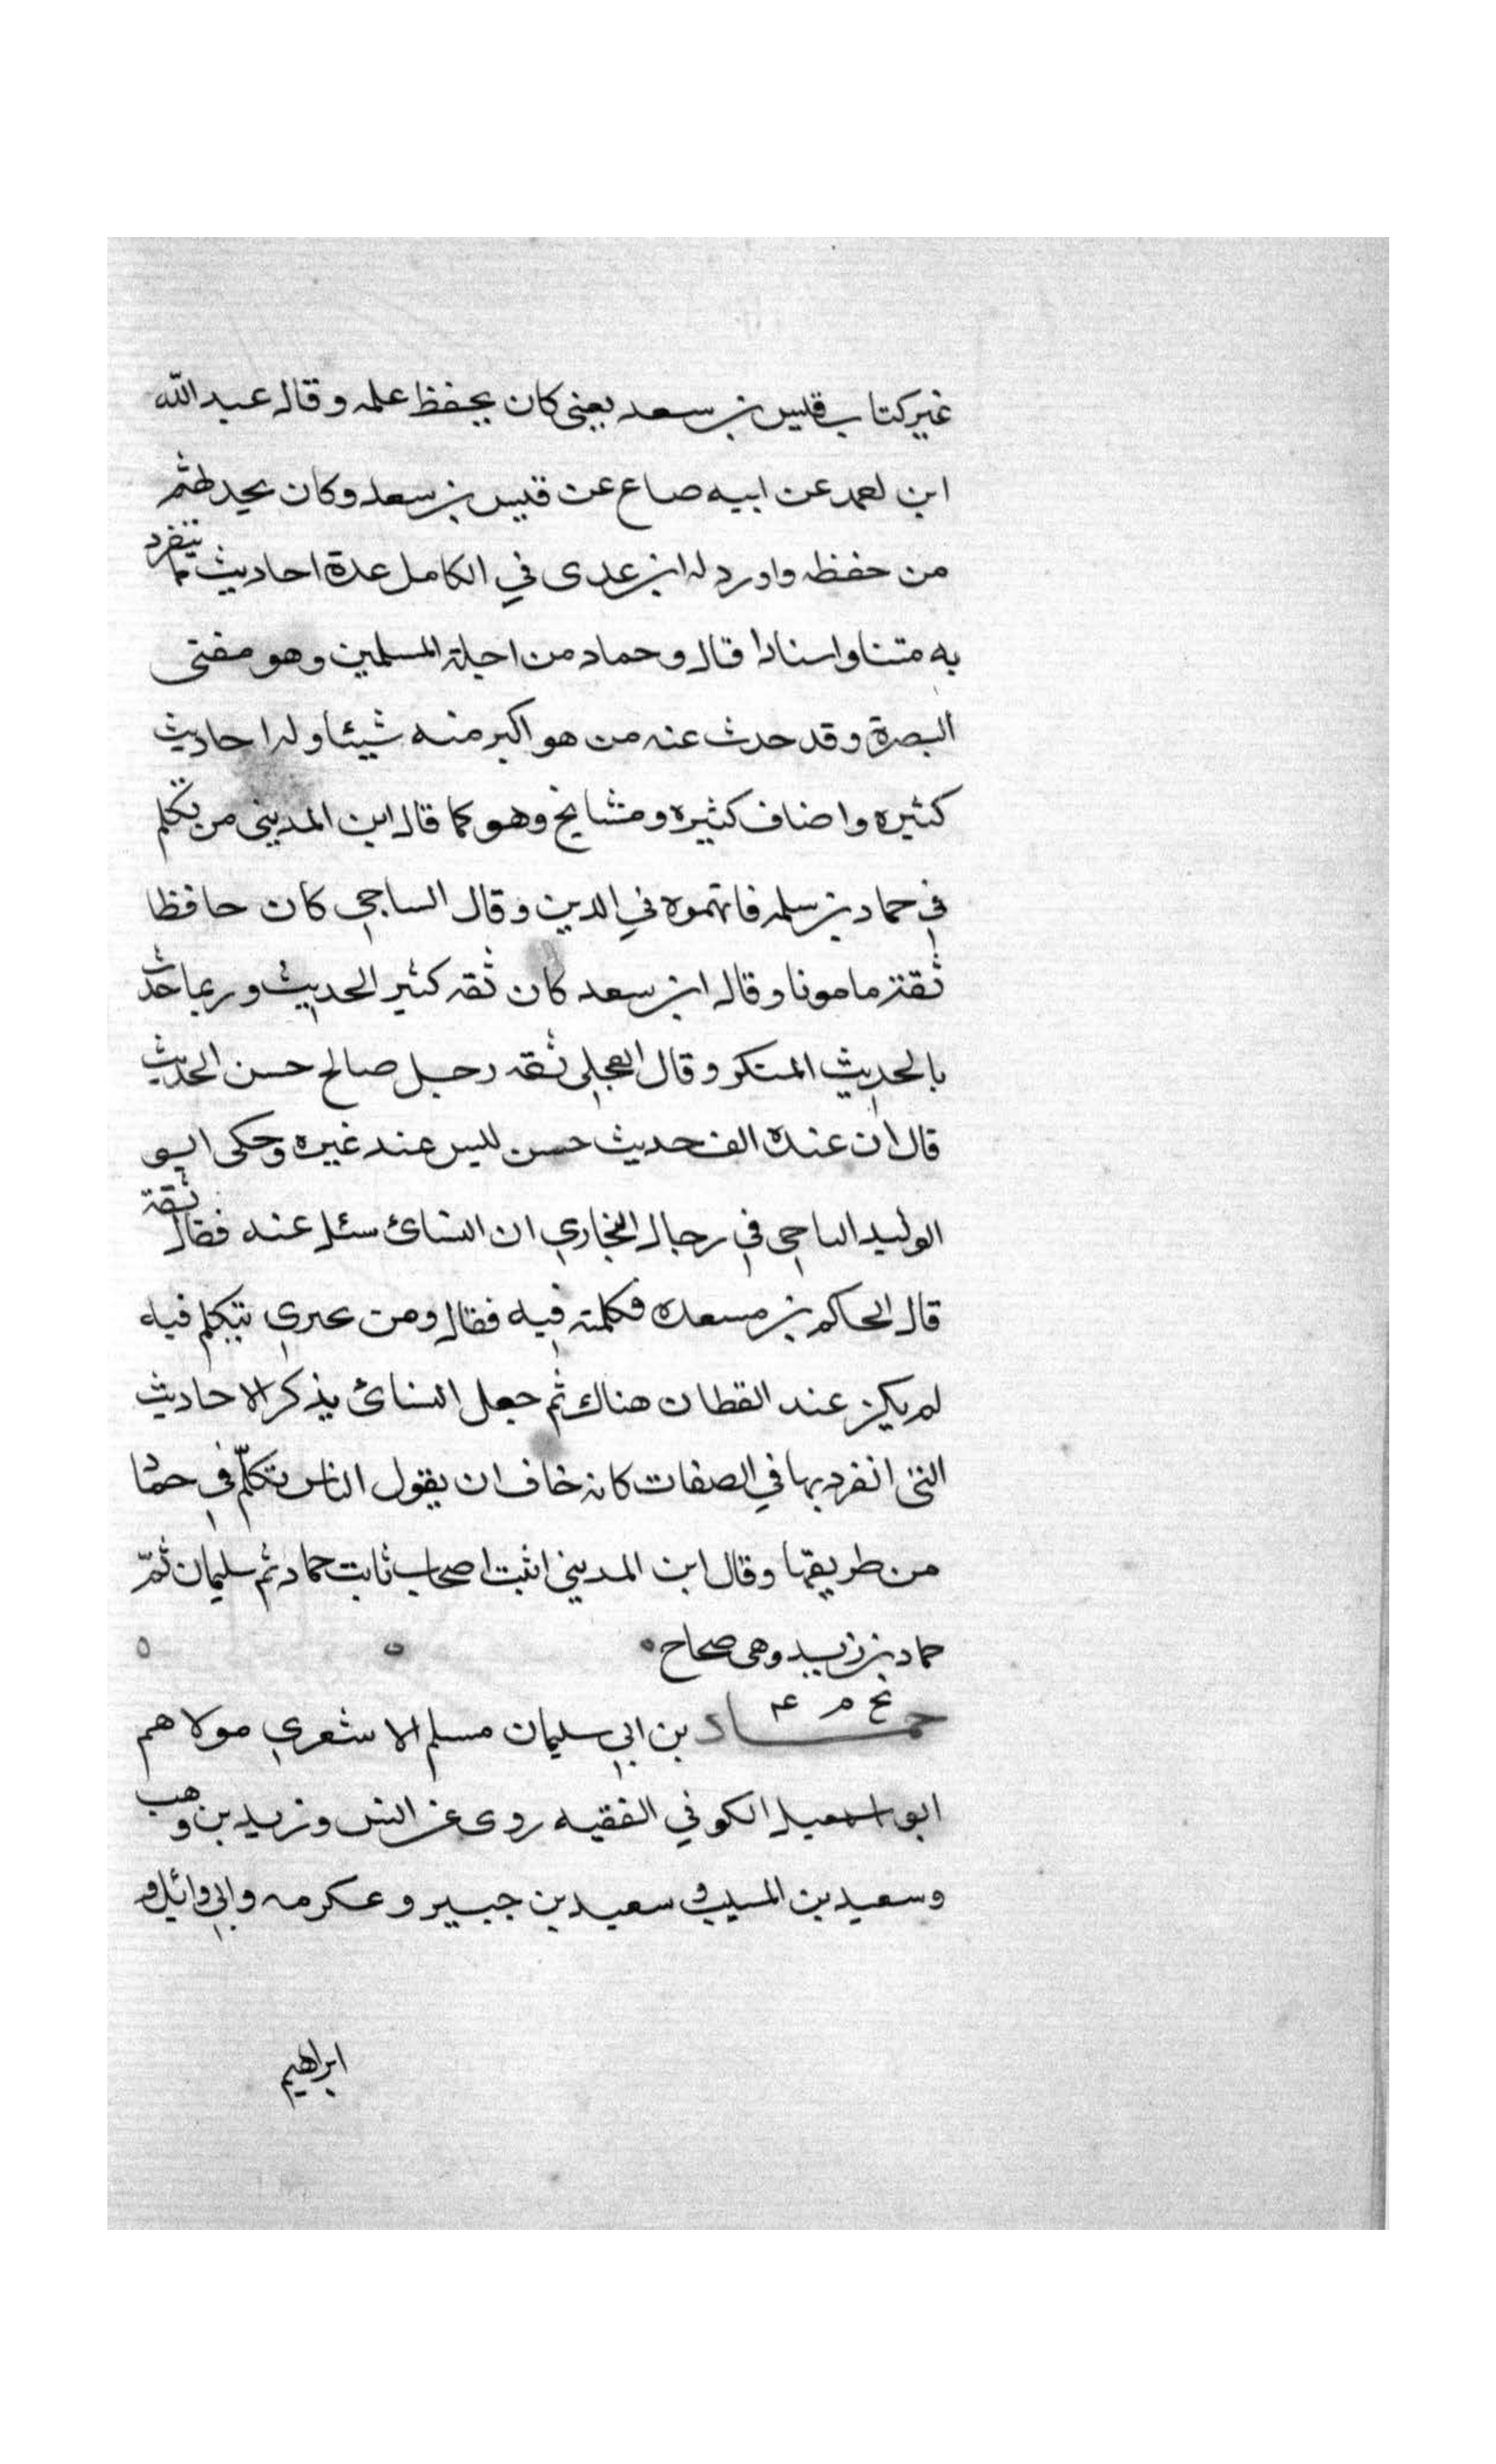 غير كتاب قيس بن سعد يعني كان يحفظ علمه وقال عبد الله
ابن احمد عن ابيه ضاع عن قيس بن سعد وكان يحدثهم
من حفظه واورد له ابن عدى في الكامل عدة احاديث مما ينفرد
به متنا واسنادا قال وحماد من اجلة المسلمين وهو مفتى
البصرة وقد حدث عنه من هو اكبر منه شيئا وله احاديث
كثيره واضاف كثيره ومشايخ وهو كما قال ابن المديني من تكلم
في حماد بن سلمه فاتهموه في الدين وقال الساجي كان حافظا
ثقة مامونا وقال ابن سعد كان ثقه كثير الحديث وربما حدث
بالحديث المنكر وقال العجلي ثقه رجل صالح حسن الحديث
قال ان عنده الف حديث حسن ليس عند غيره وحكى ابو
الوليد الباجي في رجال البخاري ان النسائ سئل عنه فقال ثقة
قال الحاكم بن مسعده فكلمته فيه فقال ومن يجتري يتكلم فيه
لم يكن عند القطان هناك ثم جعل النسائ يذكر الاحاديث
التي انفرد بها في الصفات كانه خاف ان يقول الناس تكلّم في حماد
من طريقها وقال ابن المديني اثبت اصحاب ثابت حماد ثم سليمان ثمّ
حماد بن زيد وهى صحاح
بخ م عـ
حماد بن ابي سليمان مسلم الاشعري مولاهم
ابو اسمعيل الكوفي الفقيه روى عن انس وزيد بن وهب
وسعيد بن المسيب وسعيد بن جبير وعكرمه وابي وائل و
ابراهيم